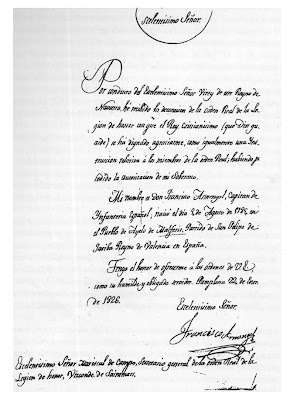 Exelentisimo Señor.
Por conducto del Exelentisimo Señor Virey de este Reyno de
Navarra, he recibido la decoracion de la Orden Real de la Le-
gion de honor con que el Rey Cristianisimo (que Dios gu-
arde) se ha dignado agraciarme, como igualmente una Ins-
truccion relativa á los miembros de la orden Real; habiendo pre-
cedido la autorizacion de mi Soberano.
Mi nombre es don Francisco Armengol, Capitan de
Infanteria Español, nació el dia de Agosto de 1785, en
el Pueblo de Ayelo de Malferit, Partido de San Felipe de
Jativa Reyno de Valencia en España.
Tengo el honor de ofrecerme á las órdenes de V.E.
como su humilde y obligado servidor. Pamplona 22 de Ene-
ro de 1826.
Exelentisimo Señor.
Francisco Armengol
Exelentisimo Señor Mariscal de Campo, Secretario general de la orden Real de la
Legion de honor, Vizconde de